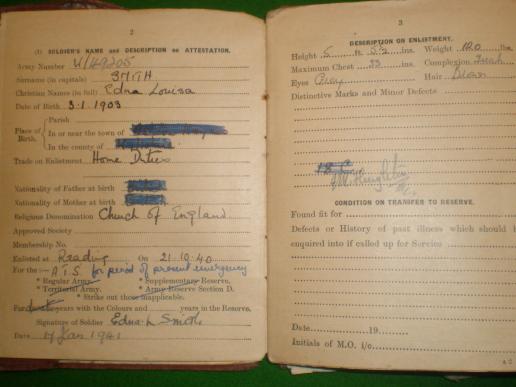 2
(1) SOLDIER'S NAME and DESCRIPTION on ATTESTATION.
Army Number W/49205
Surname (in capitals) SMITH
Christian Names (in full) Edna Louisa
Date of Birth 3.1.1903
Place of Birth.
Parish
In or near the town of
In the county of
Trade on Enlistment Home Duties
Nationality of Father at birth
Nationality of Mother at birth
Religious Denomination Church of England
Approved Society
Membership No.
Enlisted at Reading On 21.10.40
For the :- ATS for period of present emergency
* Regular Army. * Supplementary Reserve.
* Territorial Army. * Army Reserve Section D.
* Strike out those inapplicable.
For years with the Colours and years in the Reserve.
Signature of Soldier Edna L Smith
Date Jan 1941
3
DESCRIPTION ON ENLISTMENT.
Height 5 ft. ins. Weight 120 lbs.
Maximum Chest 33 ins. Complexion Fresh
Eyes Grey Hair Brown
Distinctive Marks and Minor Defects
CONDITION ON TRANSFER TO RESERVE.
Found fit for
Defects or History of past illness which should
enquired into if called up for Service
Date 19
Initials of M.O. i/c